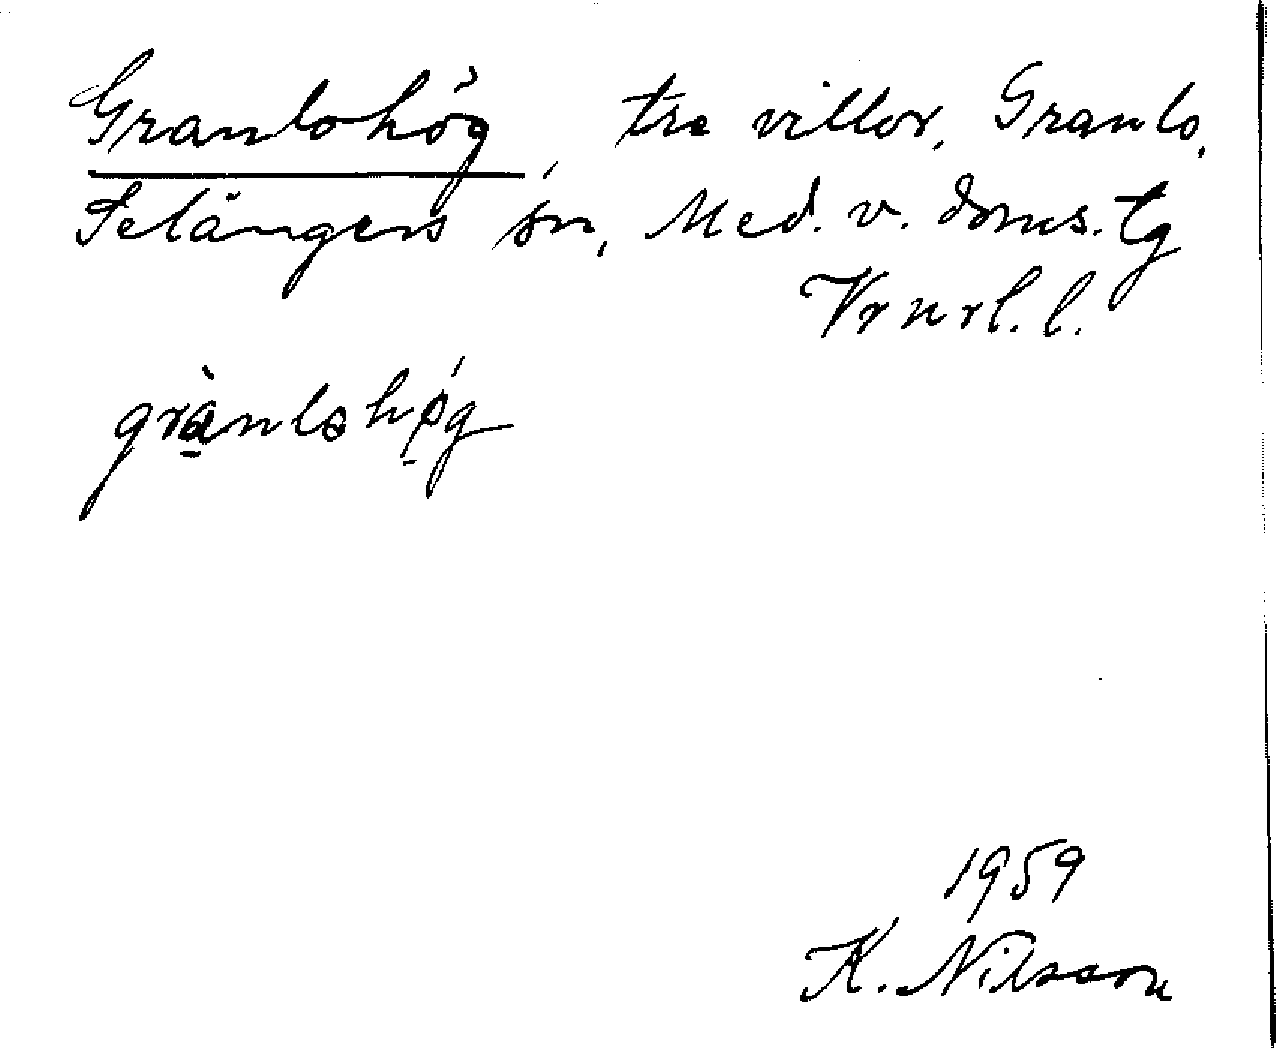 Granlohög, tre villor, Granlo,
Selångers sn, Med. v. doms. tg
Vrnrl. l.
grànlohǿg
1959
K. Nilsson